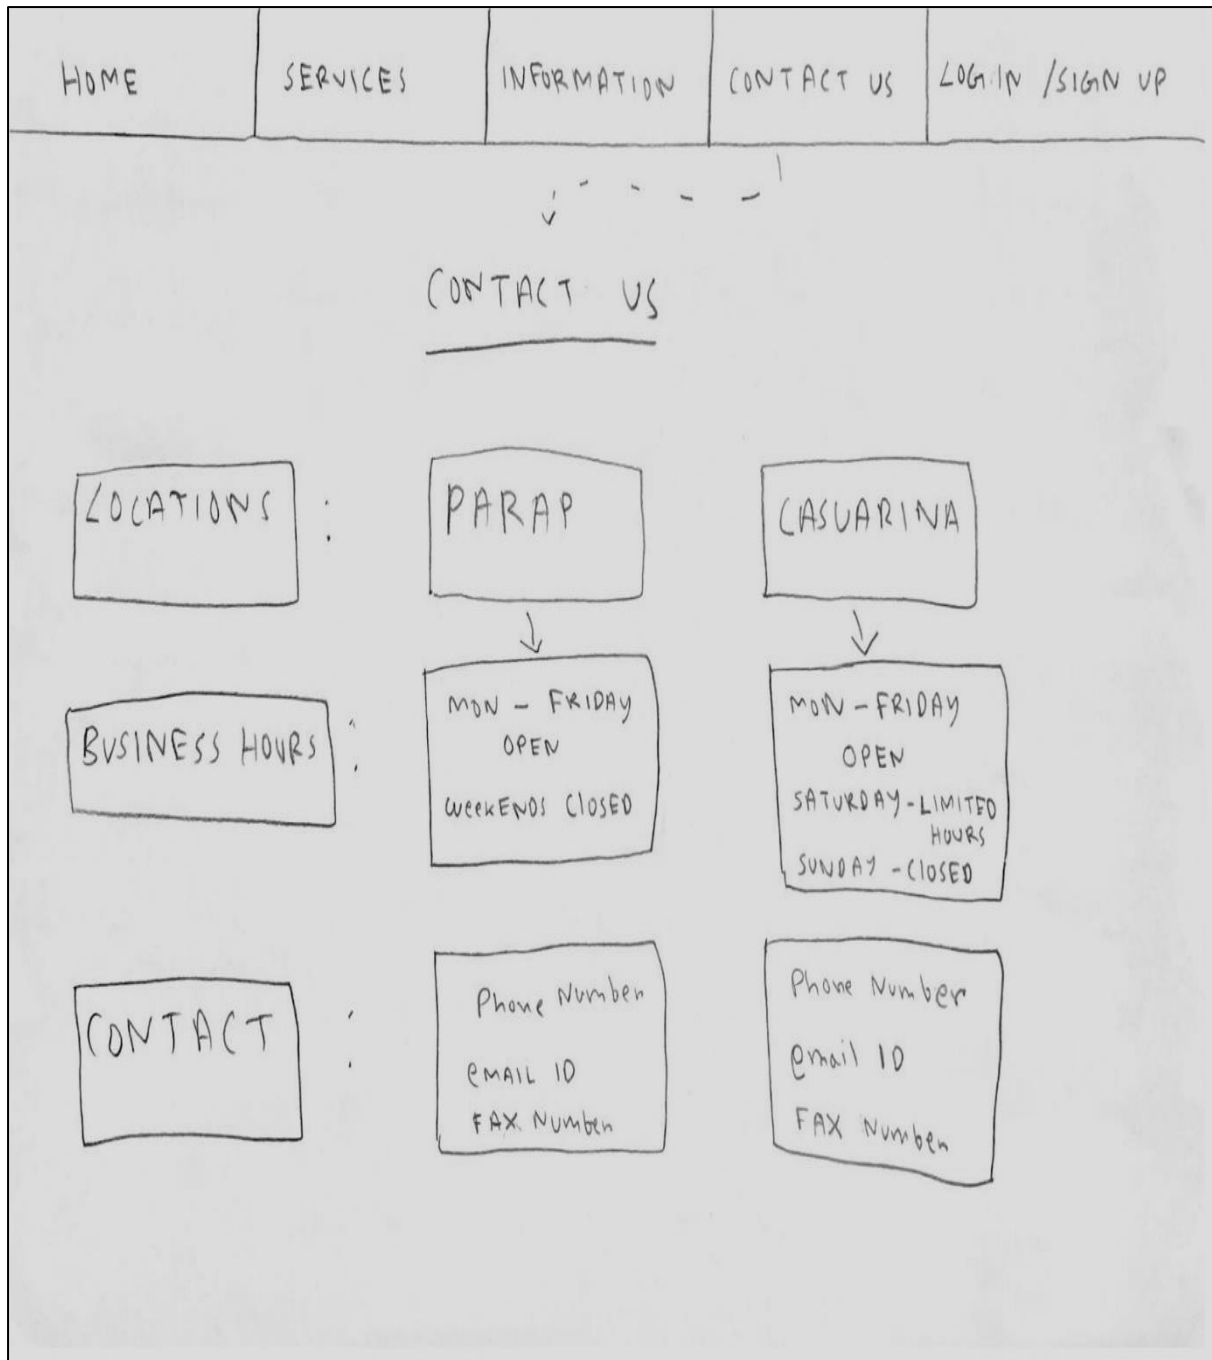 HOME
SERVICES
INFORMATION
CONTACT US
LOGIN / SIGN UP
CONTACT US
LOCATIONS :
PARAP
CASUARINA
BUSINESS HOURS :
MON - FRIDAY
OPEN
WeekENDS ClOSED
MON - FRIDAY
OPEN
SATURDAY - LIMITED
HOURS
SUNDAY - ClOSED
CONTACT :
Phone Number
eMAIL ID
FAX Number
Phone Number
email ID
FAX Number